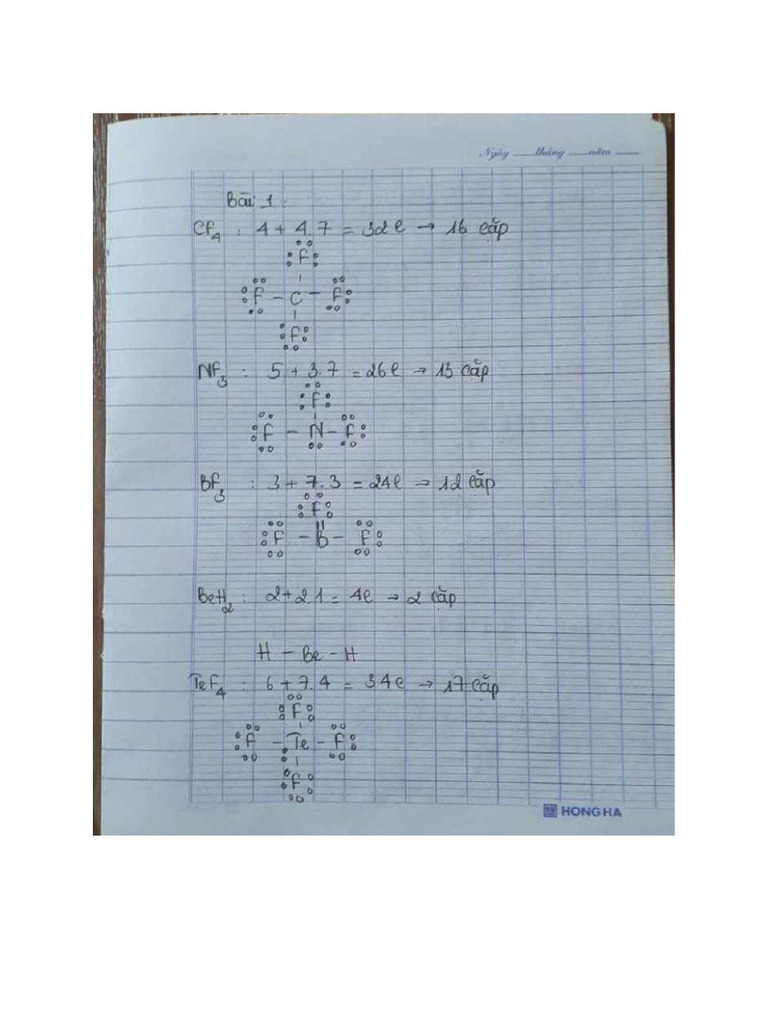 Ngày ___ tháng ___ năm ___
Bài 1 :
CF4 : 4 + 4.7 = 32e → 16 cặp
F
F – C – F
F
NF3 : 5 + 3.7 = 26e → 13 cặp
F
F – N – F
BF3 : 3 + 7.3 = 24e → 12 cặp
F
F – B – F
BeH2 : 2 + 2.1 = 4e → 2 cặp
H – Be – H
TeF4 : 6 + 7.4 = 34e → 17 cặp
F
F – Te – F
F
HONG HA